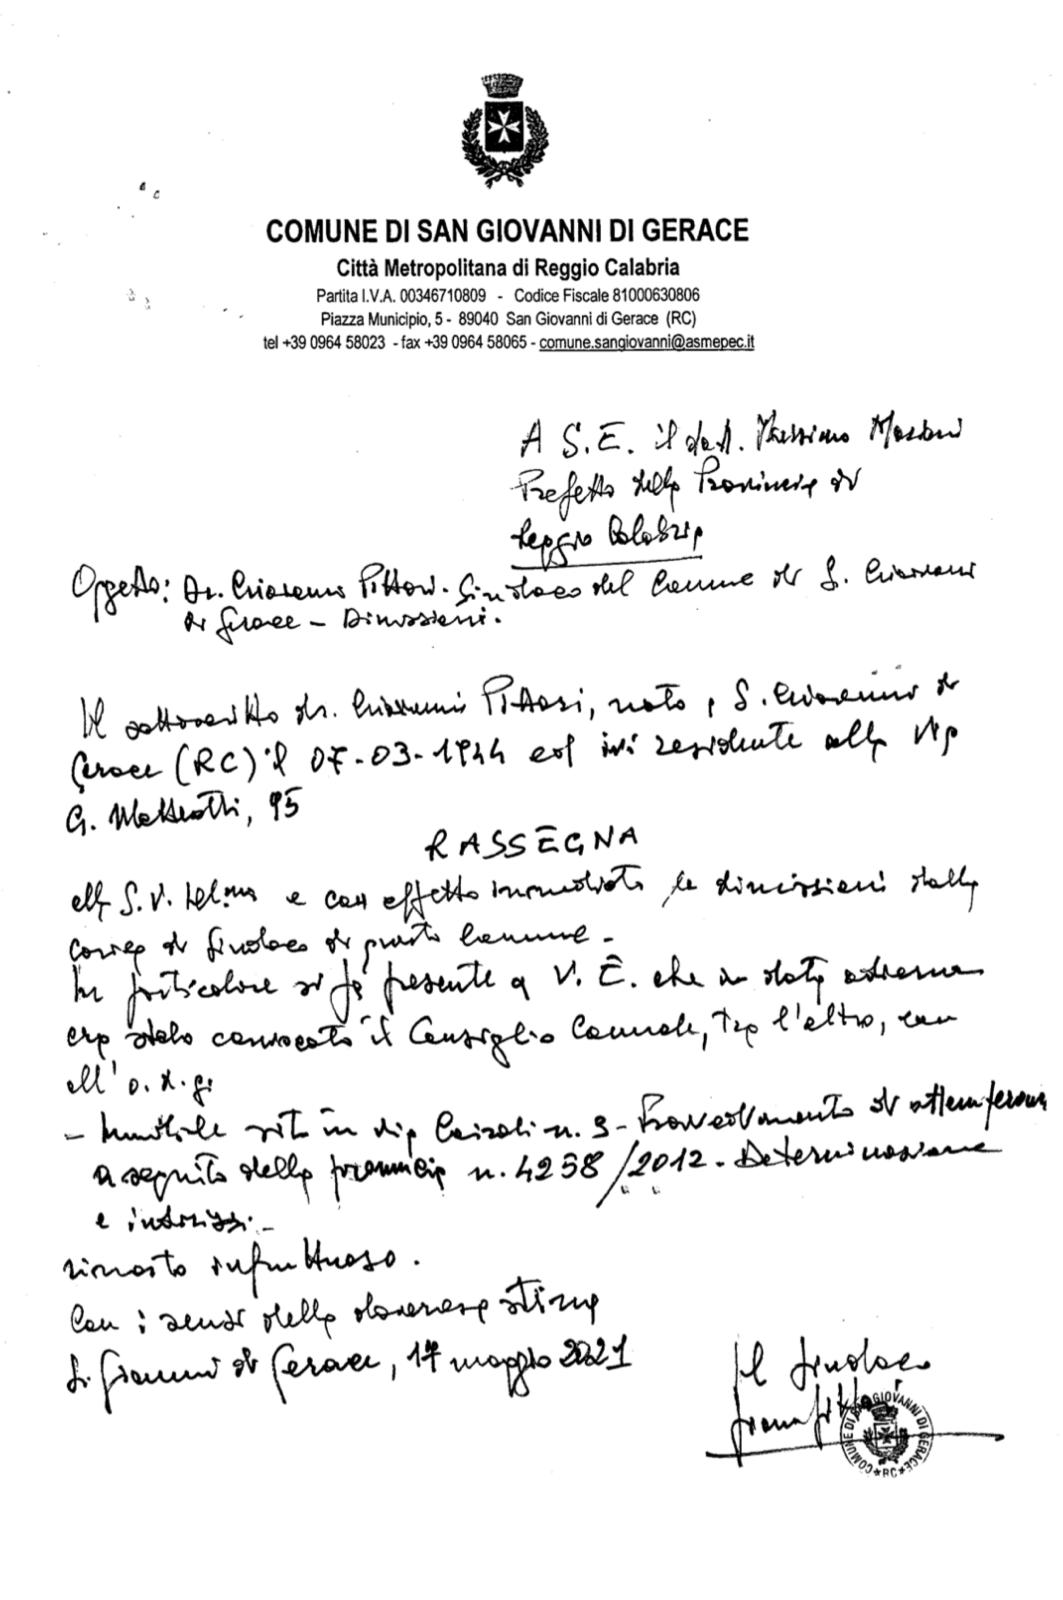 COMUNE DI SAN GIOVANNI DI GERACE
Città Metropolitana di Reggio Calabria
Partita I.V.A. 00346710809 - Codice Fiscale 81000630806
Piazza Municipio, 5 - 89040 San Giovanni di Gerace (RC)
tel +39 0964 58023 - fax +39 0964 58065 - comune.sangiovanni@asmepec.it
A S.E. il dott. Massimo Mariani
Prefetto della Provincia di
Reggio Calabria
Oggetto: Dr. Giovanni Pittari. Sindaco del Comune di S. Giovanni
di Gerace - Dimissioni.
Il sottoscritto dr. Giovanni Pittari, nato a S. Giovanni di
Gerace (RC) il 07-03-1944 ed ivi residente alla via
G. Matteotti, 95
RASSEGNA
alla S.V. Ill.ma e con effetto immediato le dimissioni dalla
carica di Sindaco di questo Comune -
In particolare si fa presente a V.E. che in data odierna
era stato convocato il Consiglio Comunale, tra l'altro, con
all'o.d.g:
- Immobile sito in via Cairoli n. 9 - Provvedimento di
a seguito della pronuncia n. 4258/2012. Determinazione
e indirizzi -
rimasto infruttuoso.
Con i sensi della doverosa stima
S. Giovanni di Gerace, 17 maggio 2021
Il Sindaco
COMUNE DI SAN GIOVANNI DI GERACE
* RC *